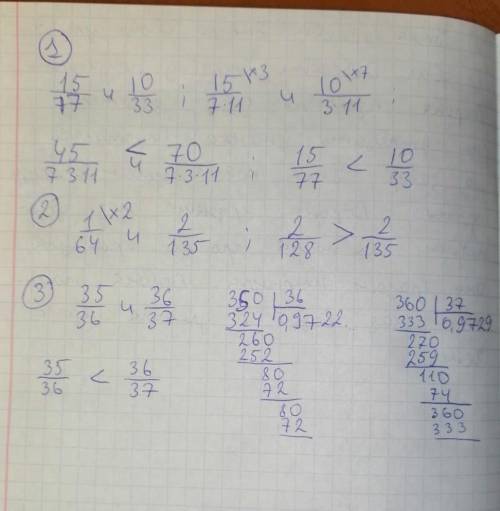 1
15/77 и 10/33 ; 15\×3/7·11 и 10\×7/3·11 ;
45/7·3·11 < и 70/7·3·11 ; 15/77 < 10/33
2
1\×2/64 и 2/135 ; 2/128 > 2/135
3) 35/36 и 36/37
35/36 < 36/37
350 | 36
324 | 0,9722..
260
252
80
72
80
72
360 | 37
333 | 0,9729
270
259
110
74
360
333